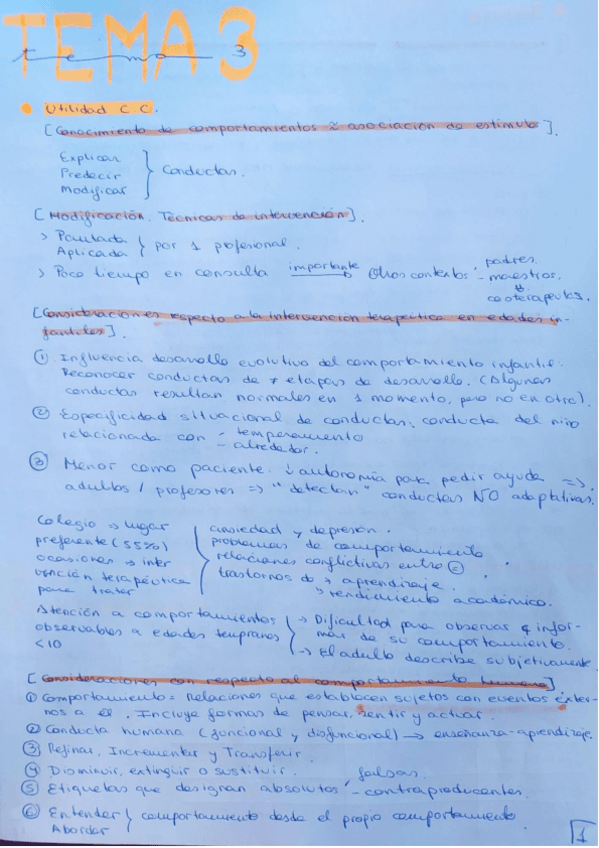 TEMA 3
tema 3
Utilidad C C.
[Conocimiento de comportamientos ≈ asociación de estímulo].
Explicar
Predecir } Conductas.
Modificar
[Modificación. Técnicas de intervención].
> Pautada } por 1 profesional.
Aplicada
> Poco tiempo en consulta importante Otros contextos - padres.
- maestros.
coterapeutas.
[Consideraciones respecto a la intervención terapéutica en edades in-
fantiles].
① Influencia desarrollo evolutivo del comportamiento infantil.
Reconocer conductas de ≠ etapas de desarrollo. (Algunas
conductas resultan normales en 1 momento, pero no en otro).
② Especificidad situacional de conductas; conducta del niño
relacionada con - temperamento
- alrededor.
③ Menor como paciente. ↓ autonomía para pedir ayuda =>
adultos / profesores => "detectan" conductas NO adaptativas.
Colegio → lugar
preferente (55%)
ocasiones → inter
vención terapéutica
para tratar
ansiedad y depresión.
problemas de comportamiento
relaciones conflictivas entre
trastornos de → aprendizaje.
→ rendimiento académico.
Atención a comportamientos
observables a edades tempranas
<10
→ Dificultad para observar e infor-
mar de su comportamiento.
→ El adulto describe subjetivamente
[Consideraciones con respecto al comportamiento humano]
① Comportamiento = relaciones que establecen sujetos con eventos exter-
nos a él. Incluye formas de pensar, sentir y actuar.
② Conducta humana (funcional y disfuncional) → enseñanza-aprendizaje.
③ Refinar, Incrementar y Transferir.
④ Disminuir, extinguir o sustituir.
⑤ Etiquetas que designan absolutos - falsas.
- contraproducentes.
⑥ Entender } comportamiento desde el propio comportamiento.
Abordar
1